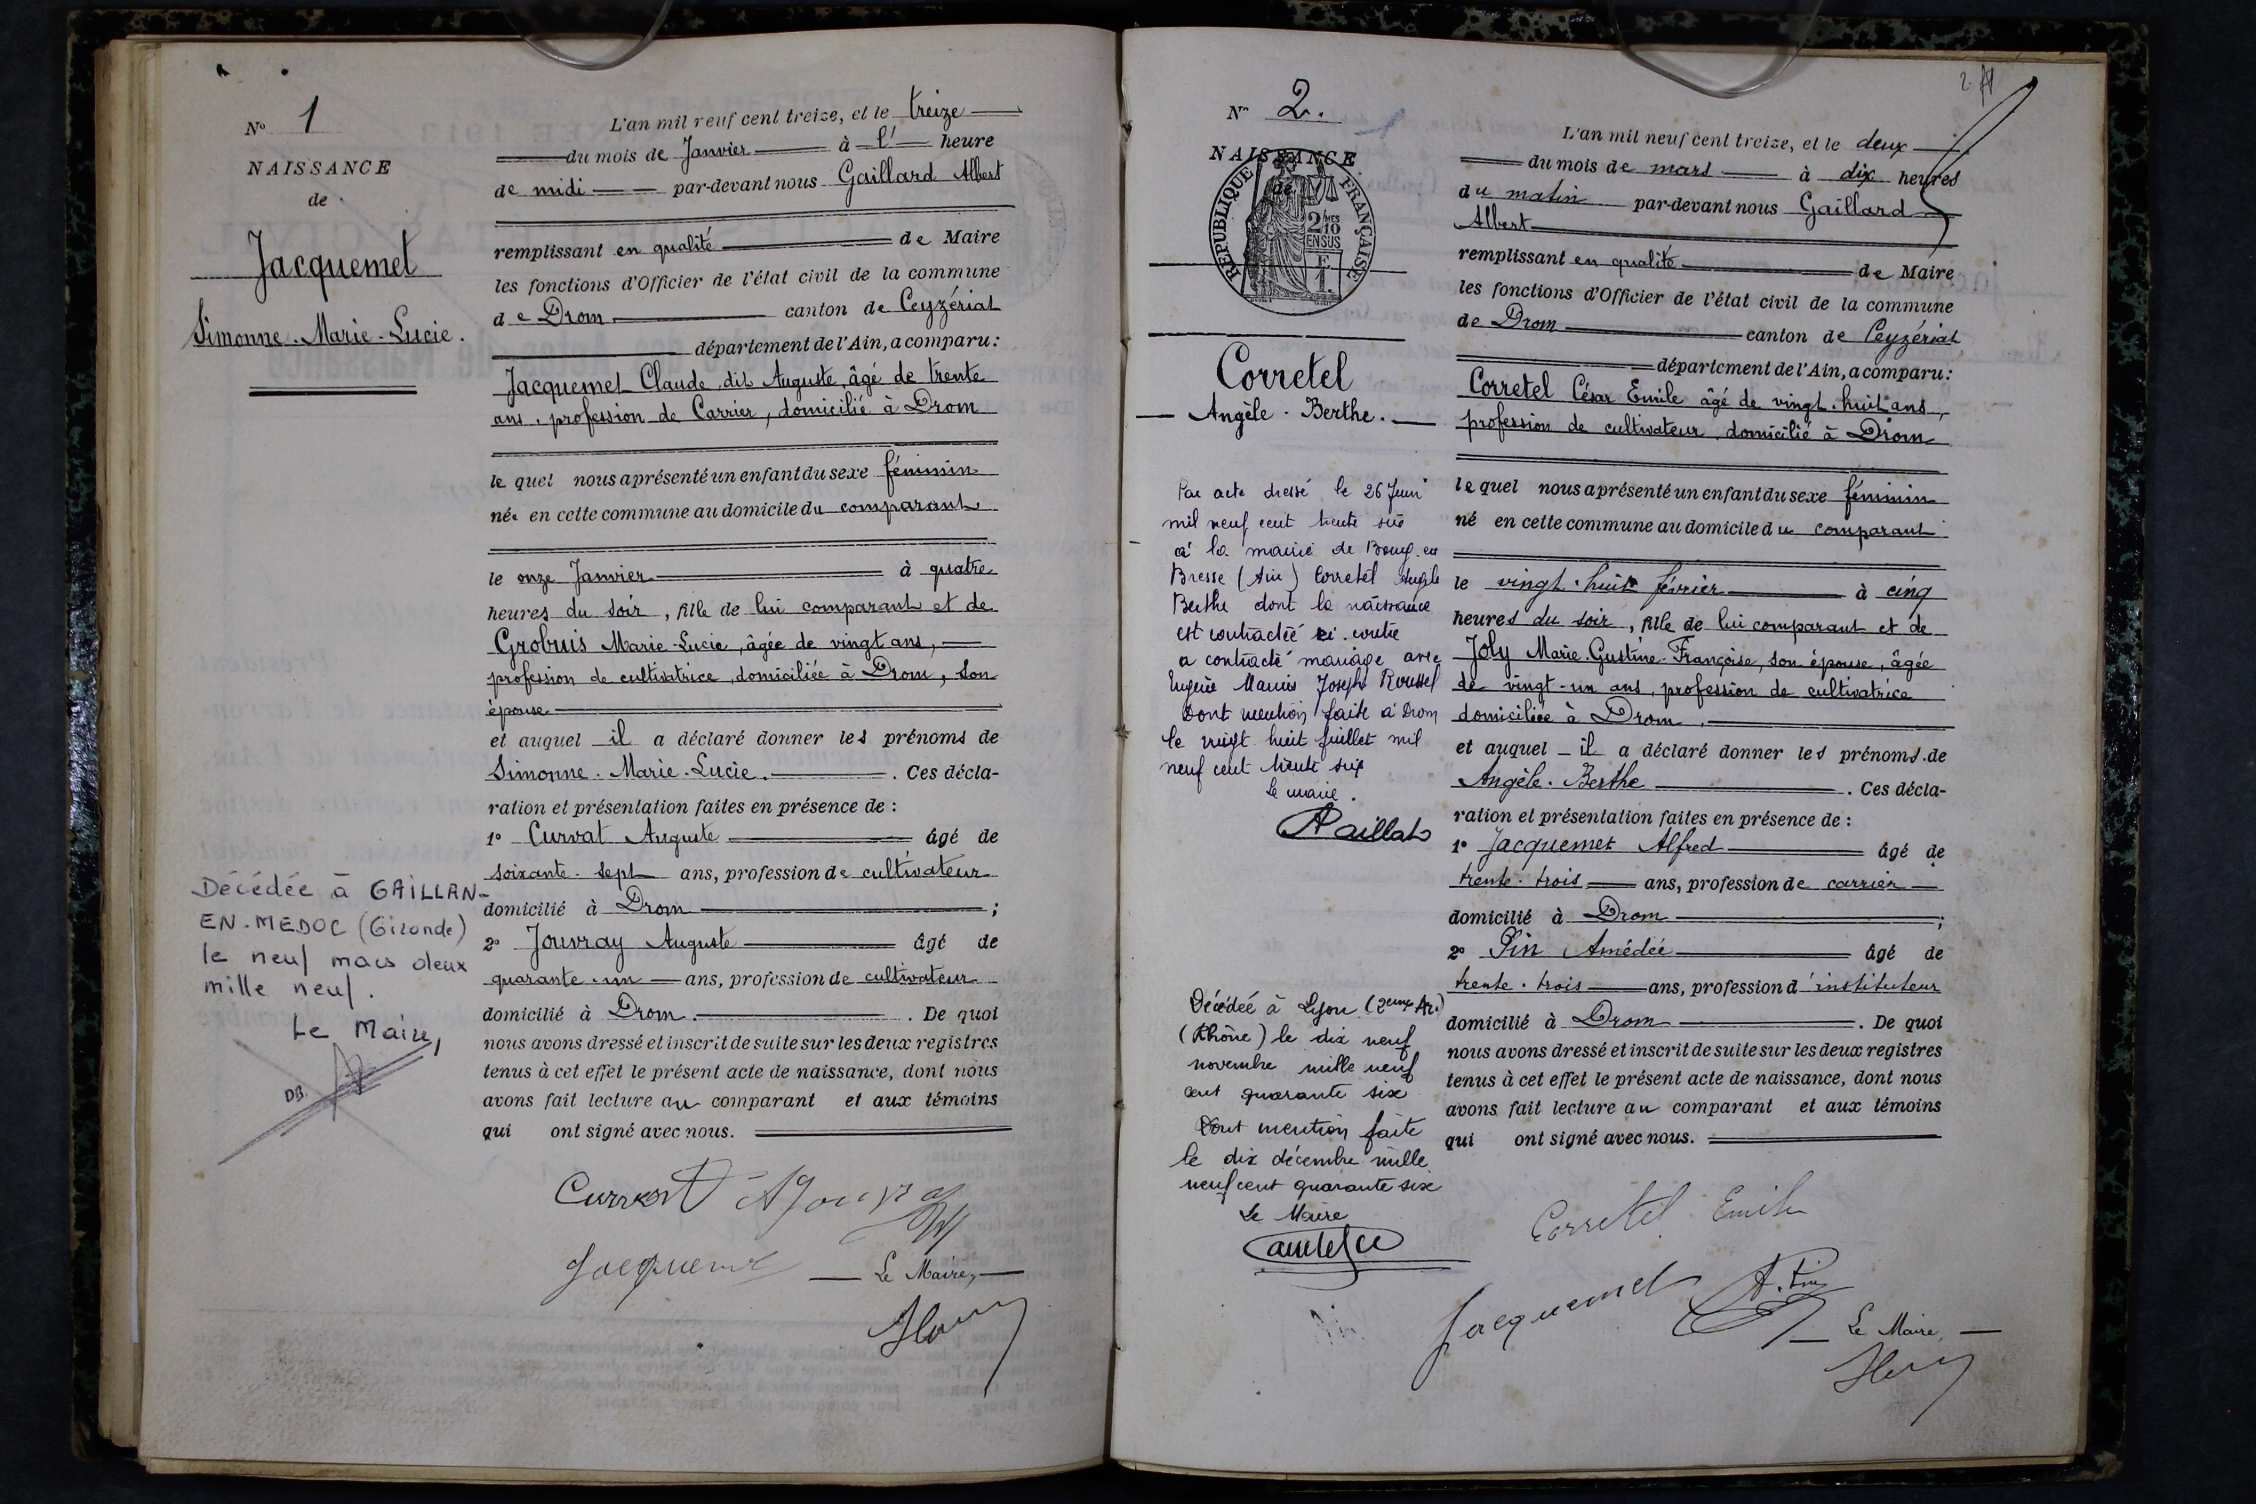 N° 1
NAISSANCE
de
Jacquemet
Simonne. Marie. Lucie.
L'an mil neuf cent treize, et le treize
du mois de Janvier à l' heure
de midi par-devant nous Gaillard Albert
remplissant en qualité de Maire
les fonctions d'Officier de l'état civil de la commune
de Drom canton de Ceyzériat
département de l'Ain, a comparu:
Jacquemet Claude, dit Auguste, âgé de trente
ans. profession de Carrier, domicilié à Drom
le quel nous a présenté un enfant du sexe féminin
née en cette commune au domicile du comparant
le onze Janvier à quatre
heures du soir, fille de lui comparant et de
Grobuis Marie-Lucie, âgée de vingt ans,
profession de cultivatrice, domiciliée à Drom, son
épouse
et auquel il a déclaré donner les prénoms de
Simonne. Marie. Lucie. . Ces décla-
ration et présentation faites en présence de :
1° Curvat Auguste âgé de
soixante. sept ans, profession de cultivateur
domicilié à Drom ;
2° Jouvray Auguste âgé de
quarante. un ans, profession de cultivateur
domicilié à Drom. . De quoi
nous avons dressé et inscrit de suite sur les deux registres
tenus à cet effet le présent acte de naissance, dont nous
avons fait lecture au comparant et aux témoins
qui ont signé avec nous.
Décédée à GAILLAN-
EN-MEDOC (Gironde)
le neuf mars deux
mille neuf.
Le Maire,
DB.
Curvat A Jouvray
Jacquemet Le Maire,
N° 2.
NAISSANCE
de
RÉPUBLIQUE FRANÇAISE
2/10
EN SUS
Corretel
Angèle. Berthe.
Par acte dressé le 26 Juin
mil neuf cent trente six
à la mairie de Bourg. en
Bresse (Ain) Corretel Angèle
Berthe dont la naissance
est contractée ci. contre
a contracté mariage avec
Eugène Marius Joseph Roussel
Dont mention faite à Drom
le vingt huit juillet mil
neuf cent trente six
Le maire.
Décédée à Lyon (2eme Ar.)
(Rhône) le dix neuf
novembre mille neuf
cent quarante six
Dont mention faite
le dix décembre mille
neuf cent quarante six
Le Maire
L'an mil neuf cent treize, et le deux
du mois de mars à dix heures
du matin par-devant nous Gaillard
Albert
remplissant en qualité de Maire
les fonctions d'Officier de l'état civil de la commune
de Drom canton de Ceyzériat
département de l'Ain, a comparu:
Corretel César Emile âgé de vingt. huit ans,
profession de cultivateur, domicilié à Drom
le quel nous a présenté un enfant du sexe féminin
né en cette commune au domicile du comparant
le vingt. huit février à cinq
heures du soir, fille de lui comparant et de
Joly Marie. Gustine. Françoise, son épouse, âgée
de vingt-un ans, profession de cultivatrice
domiciliée à Drom.
et auquel il a déclaré donner les prénoms de
Angèle. Berthe . Ces décla-
ration et présentation faites en présence de :
1° Jacquemet Alfred âgé de
trente. trois ans, profession de carrier
domicilié à Drom ;
2° Pin Amédée âgé de
trente. trois ans, profession d'instituteur
domicilié à Drom . De quoi
nous avons dressé et inscrit de suite sur les deux registres
tenus à cet effet le présent acte de naissance, dont nous
avons fait lecture au comparant et aux témoins
qui ont signé avec nous.
Corretel Emile
Jacquemet A. Pin
Le Maire,